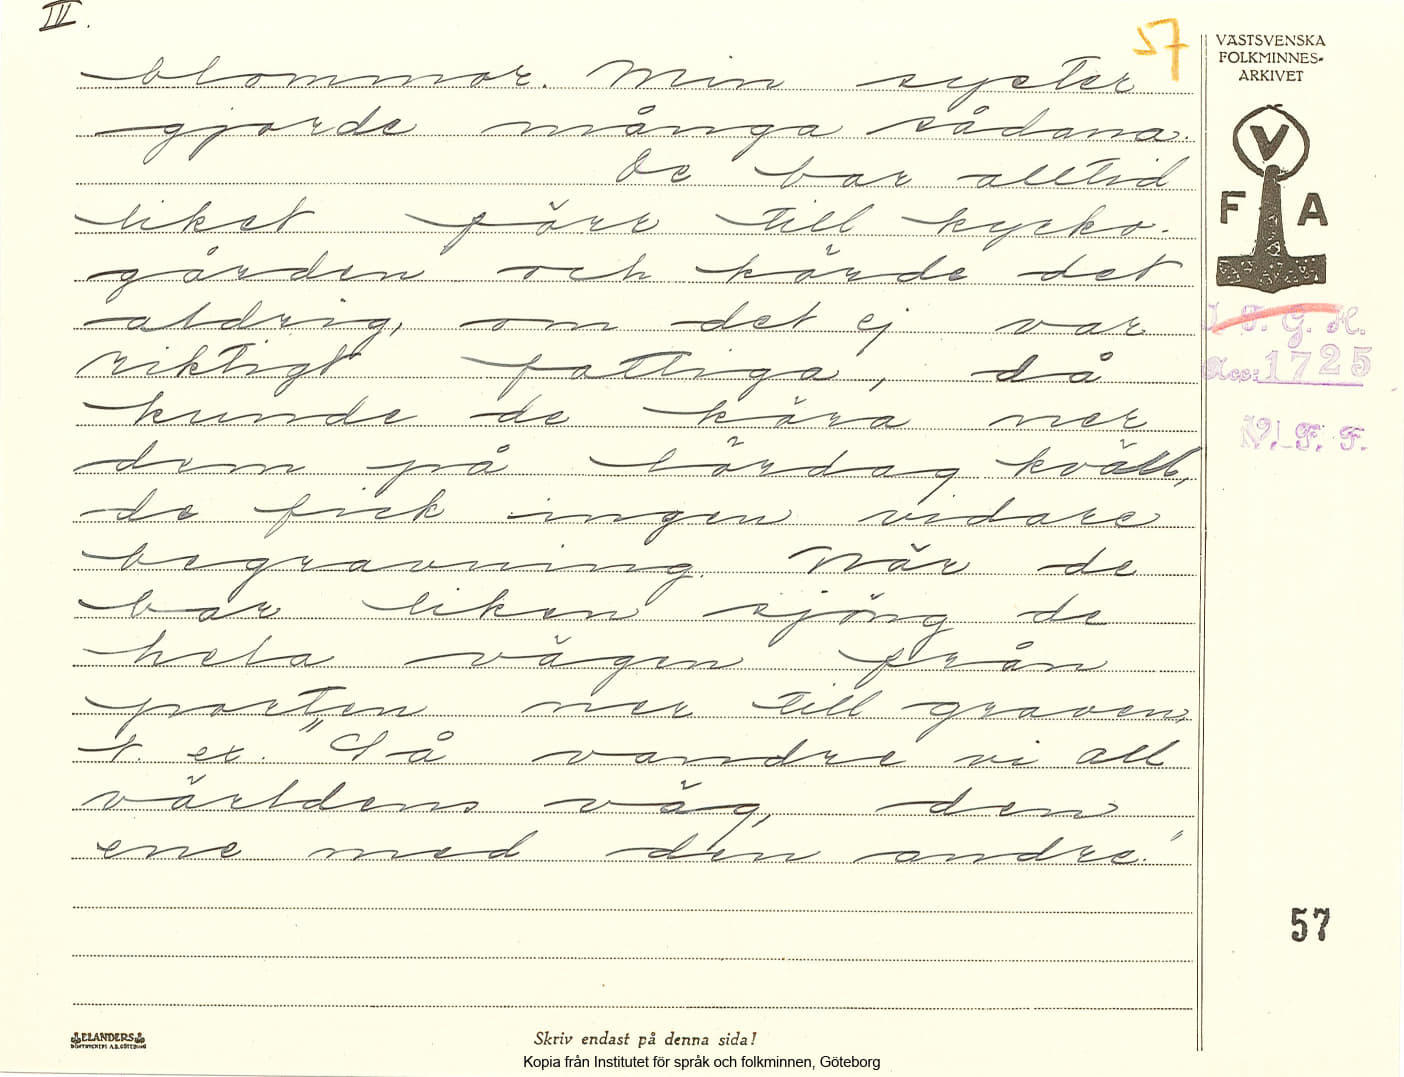 III.
57
VÄSTSVENSKA
FOLKMINNES-
ARKIVET
V
F A
blommor. Min syster
gjorde många sådana.
De bar alltid
liket förr till kyrko-
gården och körde det
aldrig, om det ej var
riktigt fattiga, då
kunde de köra ner
dem på lördag kväll,
de fick ingen vidare
begravning. När de
bar liken sjöng de
hela vägen från
porten ner till graven,
t. ex. "Så vandre vi all
världens väg, den
ene med den andre."
I. F. G. H.
Acc: 1725
V. F. F.
57
ELANDERS
Skriv endast på denna sida!
Kopia från Institutet för språk och folkminnen, Göteborg